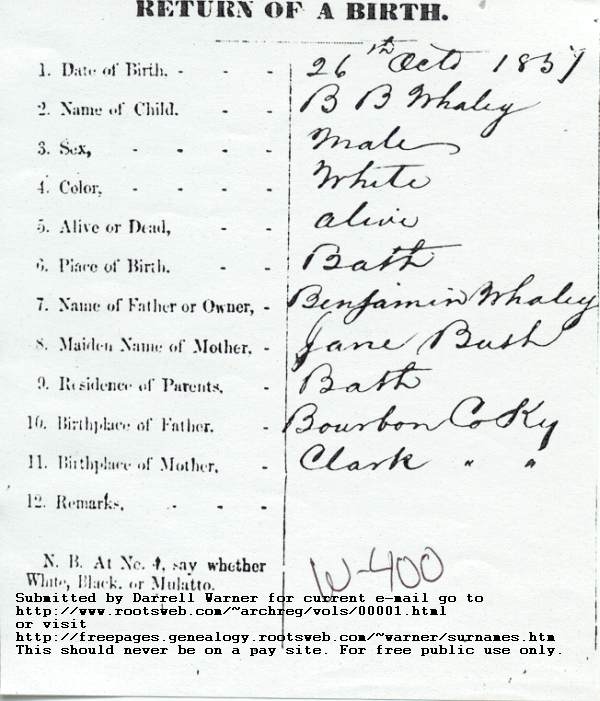 RETURN OF A BIRTH.
1. Date of Birth. - - - 26th Octo 1857
2. Name of Child. - - B B Whaley
3. Sex, - - - - Male
4. Color, - - - - White
5. Alive or Dead, - - alive
6. Place of Birth. - - Bath
7. Name of Father or Owner, - Benjamin Whaley
8. Maiden Name of Mother, - Jane Bush
9. Residence of Parents, - Bath
10. Birthplace of Father. - Bourbon Co Ky
11. Birthplace of Mother, - Clark " "
12. Remarks, - - -
N. B. At No. 4, say whether
White, Black, or Mulatto.
W-400
Submitted by Darrell Warner for current e-mail go to
http://www.rootsweb.com/~archreg/vols/00001.html
or visit
http://freepages.genealogy.rootsweb.com/~warner/surnames.htm
This should never be on a pay site. For free public use only.